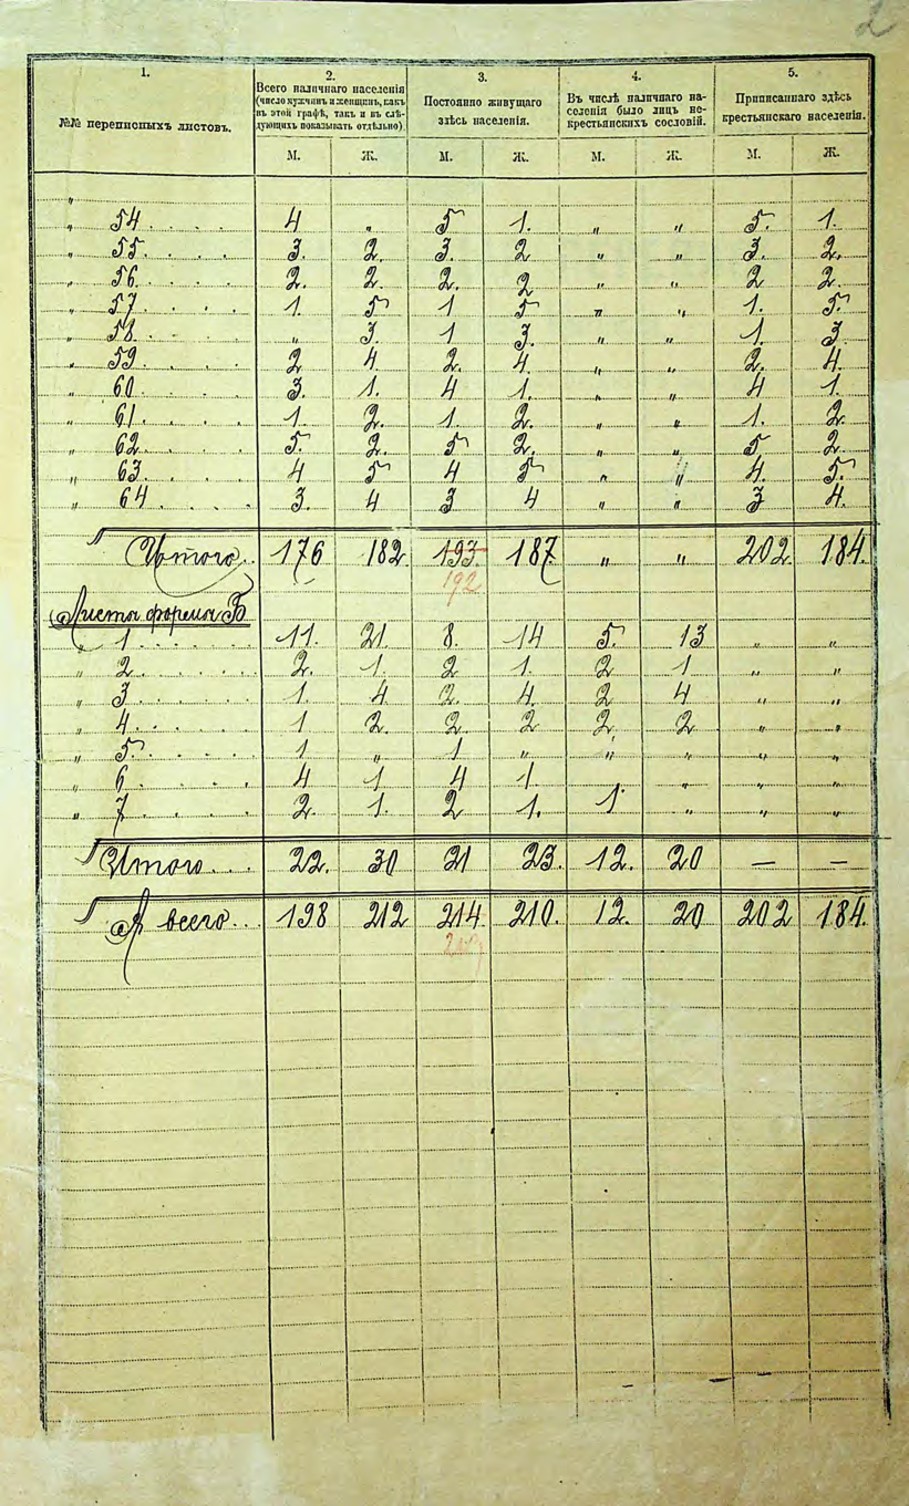 2
1. 2. 3. 4. 5.
№№ переписныхъ листовъ.
Всего наличнаго населенія
(число мужчинъ и женщинъ, какъ
въ этой графѣ, такъ и въ слѣ-
дующихъ показывать отдѣльно)
Постоянно живущаго
здѣсь населенія.
Въ числѣ наличнаго на-
селенія было лицъ не-
крестьянскихъ сословій.
Приписаннаго здѣсь
крестьянскаго населенія.
М. Ж. М. Ж. М. Ж. М. Ж.
"
" 54 . . . . 4 " 5 1. " " 5. 1.
" 55. . . . 3. 2. 3. 2 " " 3. 2.
" 56. . . . 2. 2. 2. 2 " " 2 2.
" 57 . . . . 1. 5 1 5 " " 1. 5.
" 58. . . . " 3. 1 3. " " 1. 3
" 59. . . . 2 4. 2. 4. " " 2. 4.
" 60. . . . 3. 1. 4 1. " " 4 1.
" 61. . . . 1. 2. 1. 2. " " 1. 2.
" 62. . . . 5. 2. 5 2. " " 5 2.
" 63. . . . 4 5 4 5 " " 4. 5.
" 64. . . . 3. 4 3 4 " " 3 4.
Итого.. 176 182. 193. 187. " " 202. 184.
192
Листа форма Б
" 1. . . . . . 11. 21. 8. 14 5. 13 " "
" 2. . . . . . 2. 1. 2 1. 2 1 " "
" 3. . . . . . 1. 4 2. 4. 2 4 " "
" 4. . . . . . 1 2. 2. 2 2. 2 " "
" 5. . . . . 1 " 1 " " " " "
" 6 . . . . . 4 1 4 1. " " "
" 7. . . . . 2. 1. 2 1. 1. " " "
Итого... 22. 30 21 23. 12. 20 — —
А всего.. 198 212 214. 210. 12. 20 202 184.